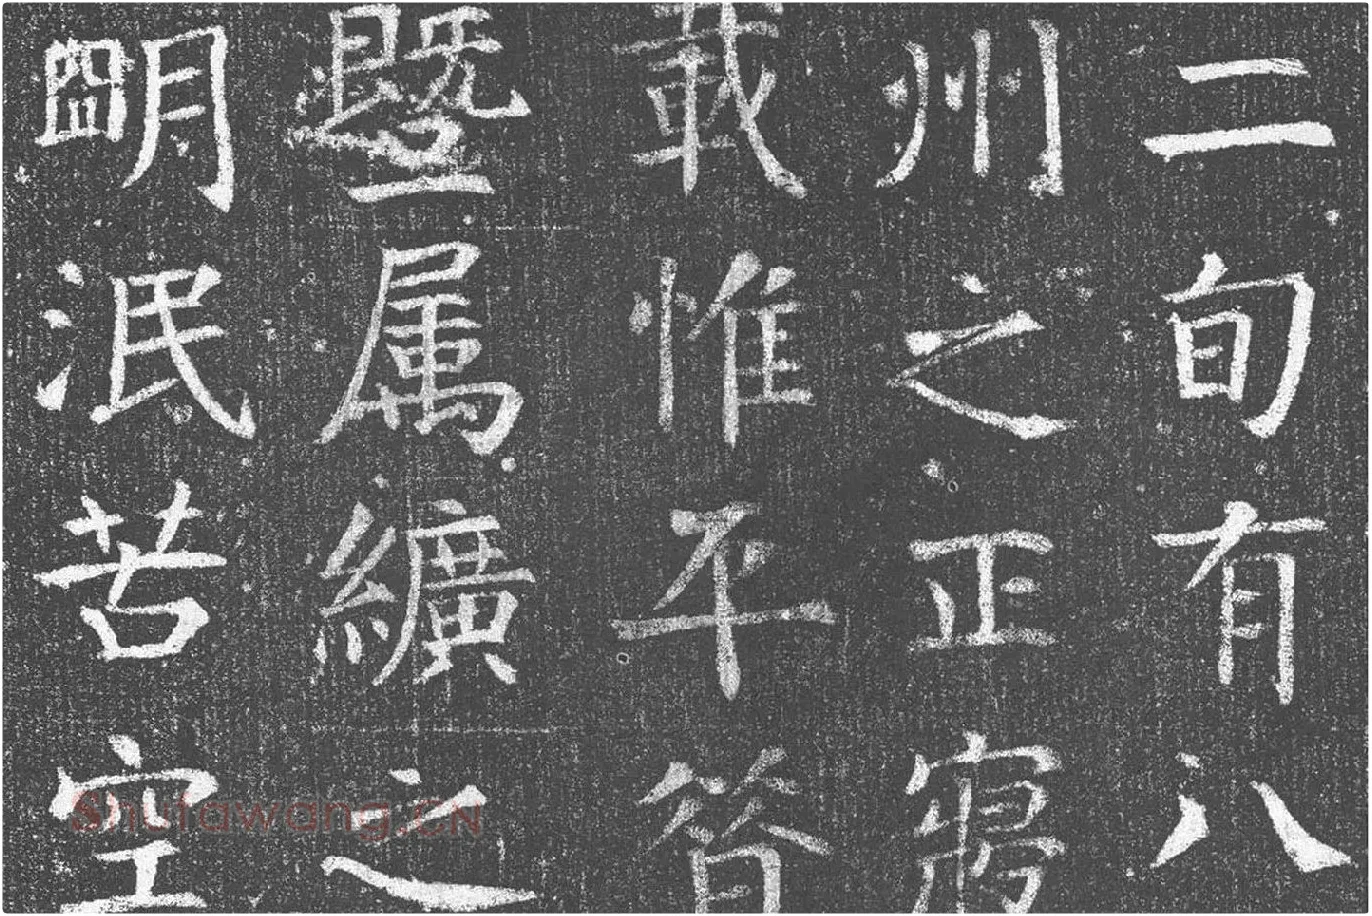 二旬有八
州之正寢
載惟平昔
暨属纊之
明泯苦空
Shufawang.CN